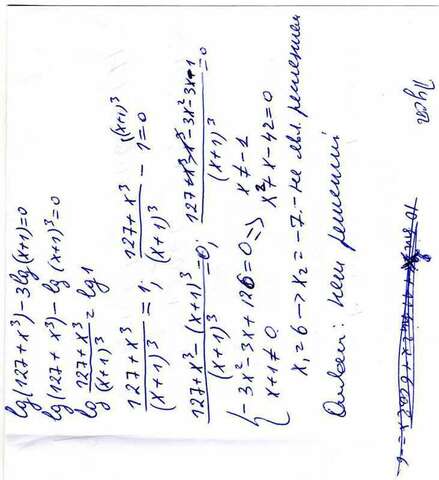 lg(127+x³)-3lg(x+1)=0
lg(127+x³)-lg(x+1)³=0
lg (127+x³)/(x+1)³ = lg1
(127+x³)/(x+1)³ = 1; (127+x³)/(x+1)³ - 1 = 0 (x+1)³
(127+x³-(x+1)³)/(x+1)³ = 0; (127+x³-x³-3x²-3x-1)/(x+1)³ = 0
{ -3x²-3x+126=0 => x≠-1
x+1≠0 x²+x-42=0
x₁=6 → x₂=-7 - не явл. решением
Ответ: нет решений